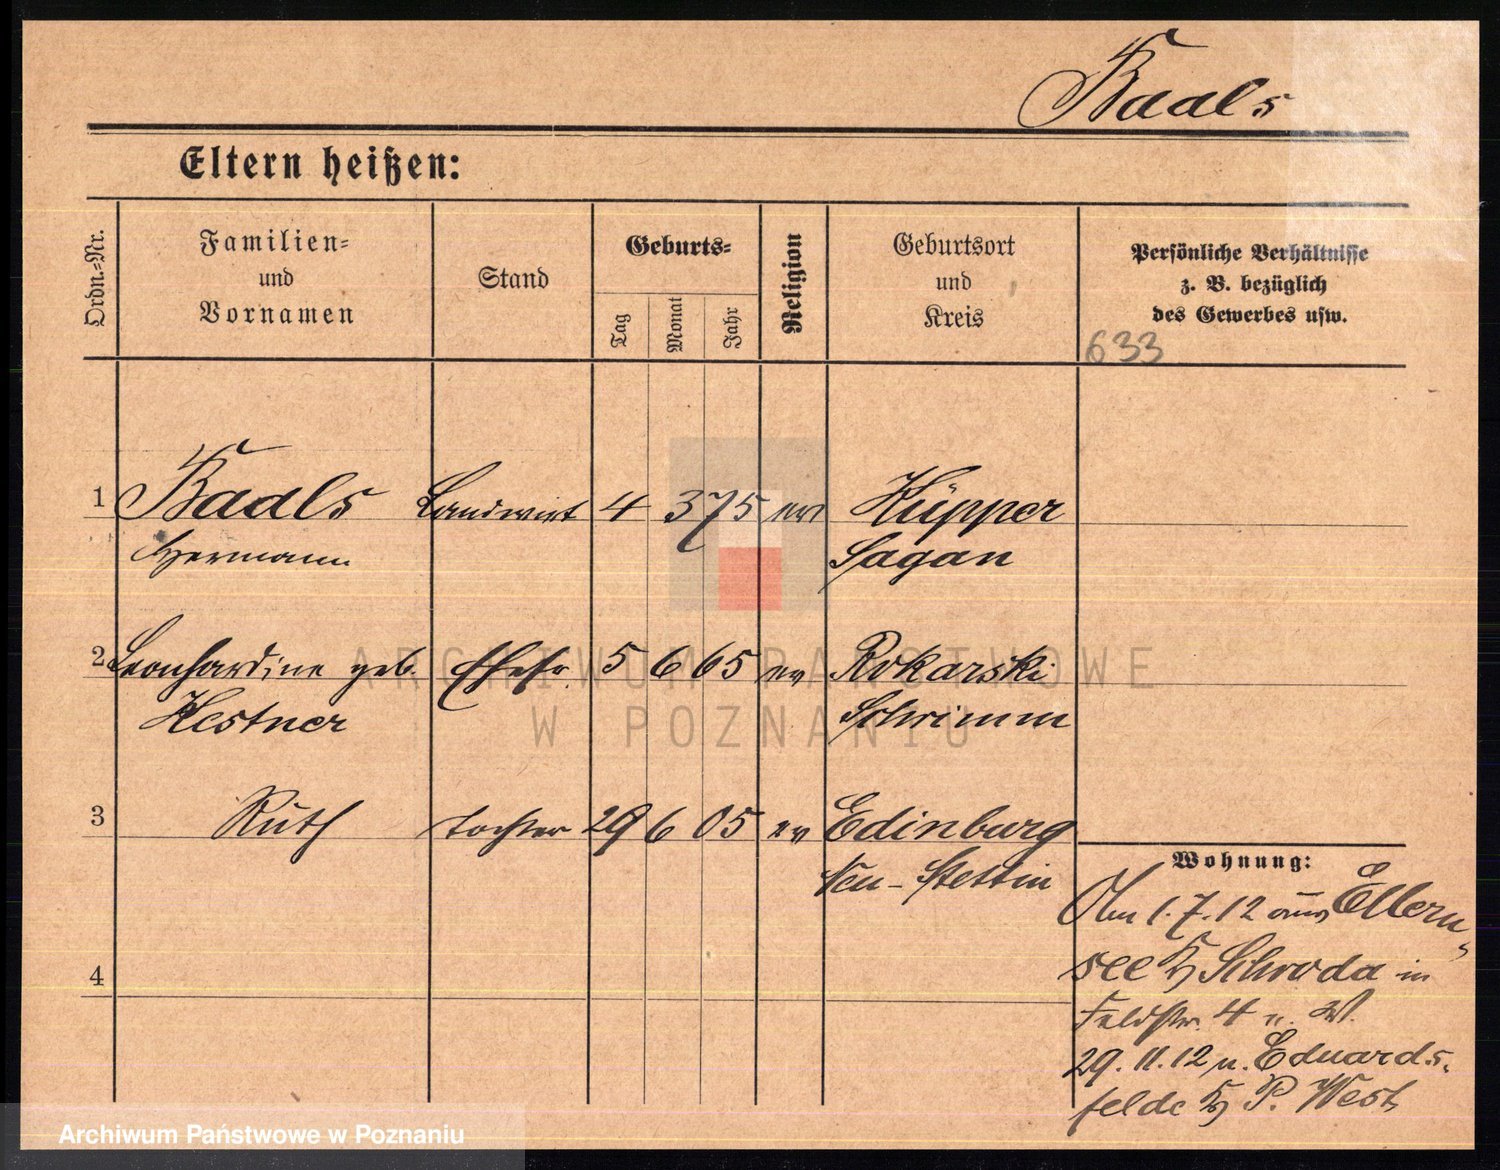 Baals
Eltern heißen:
Ordn.-Nr.
Familien-
und
Vornamen
Stand
Geburts-
Tag
Monat
Jahr
Religion
Geburtsort
und
Kreis
Persönliche Verhältnisse
z. B. bezüglich
des Gewerbes usw.
633
1 Baals Landwirt 4 3 75 ev Küpper
Hermann Sagan
2 Leonhardine geb. Ehefr. 5 6 65 ev Rokarski
Kestner Schrimm
3 Ruth Tochter 29 6 05 ev Edinburg
Neu-Stettin
Wohnung:
Am 1.7.12 aus Ellern-
see Schroda in
Feldstr. 4 u. W.
29.11.12 n. Eduards-
felde P. West
4
ARCHIWUM PAŃSTWOWE
W POZNANIU
Archiwum Państwowe w Poznaniu